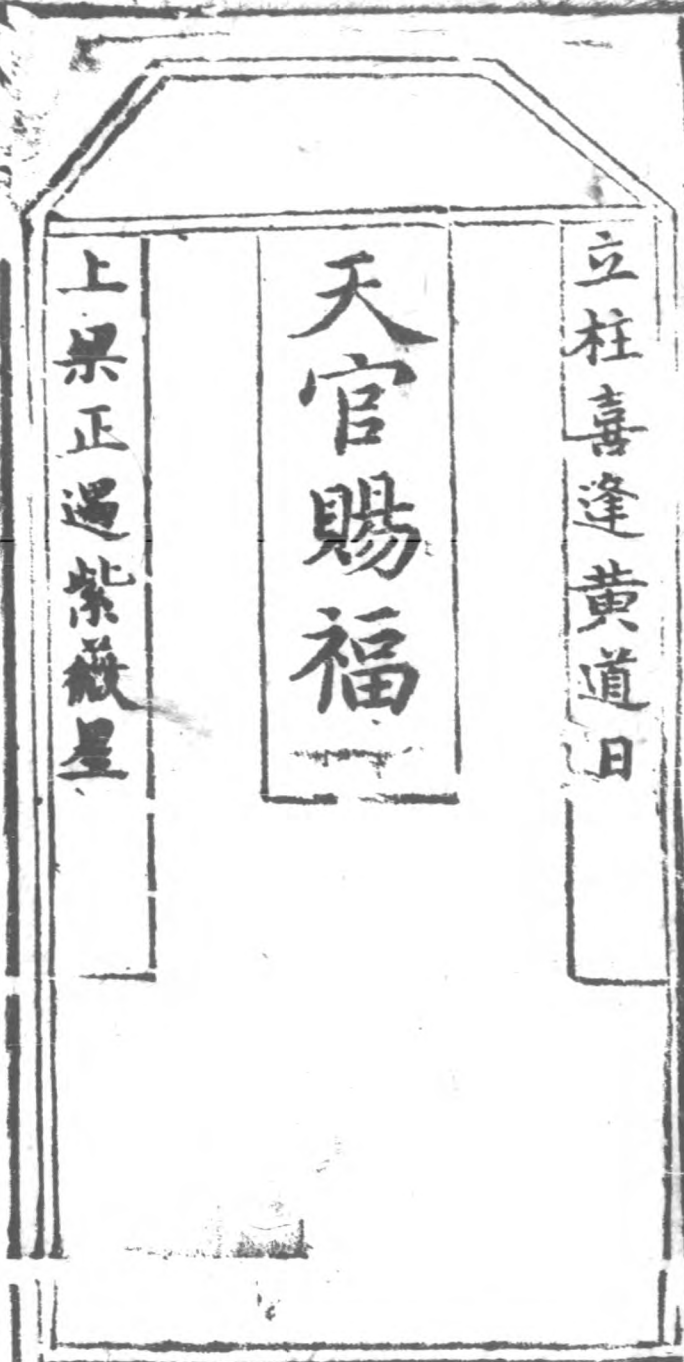 立柱喜逢黄道日
天官賜福
上梁正遇紫薇星